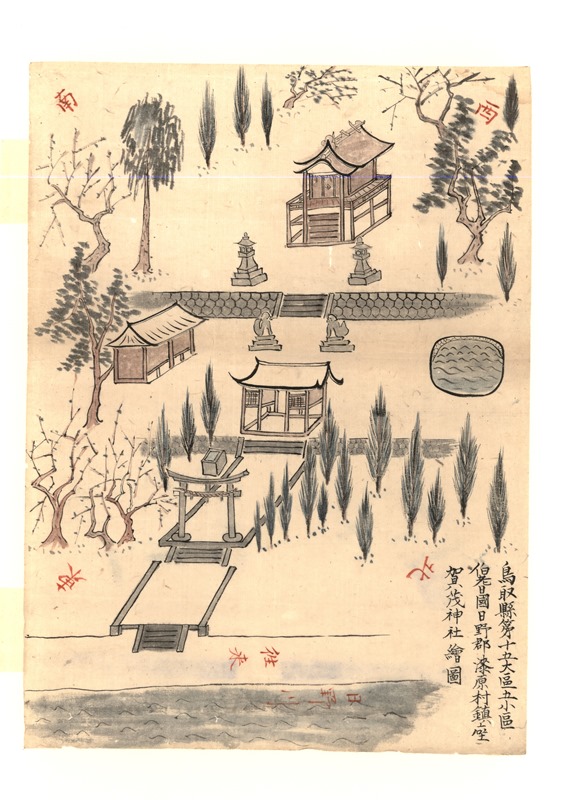 鳥取縣第十五大區五小區
伯耆國日野郡漆原村鎮座
賀茂神社繪圖
西
南
北
往来
日野川